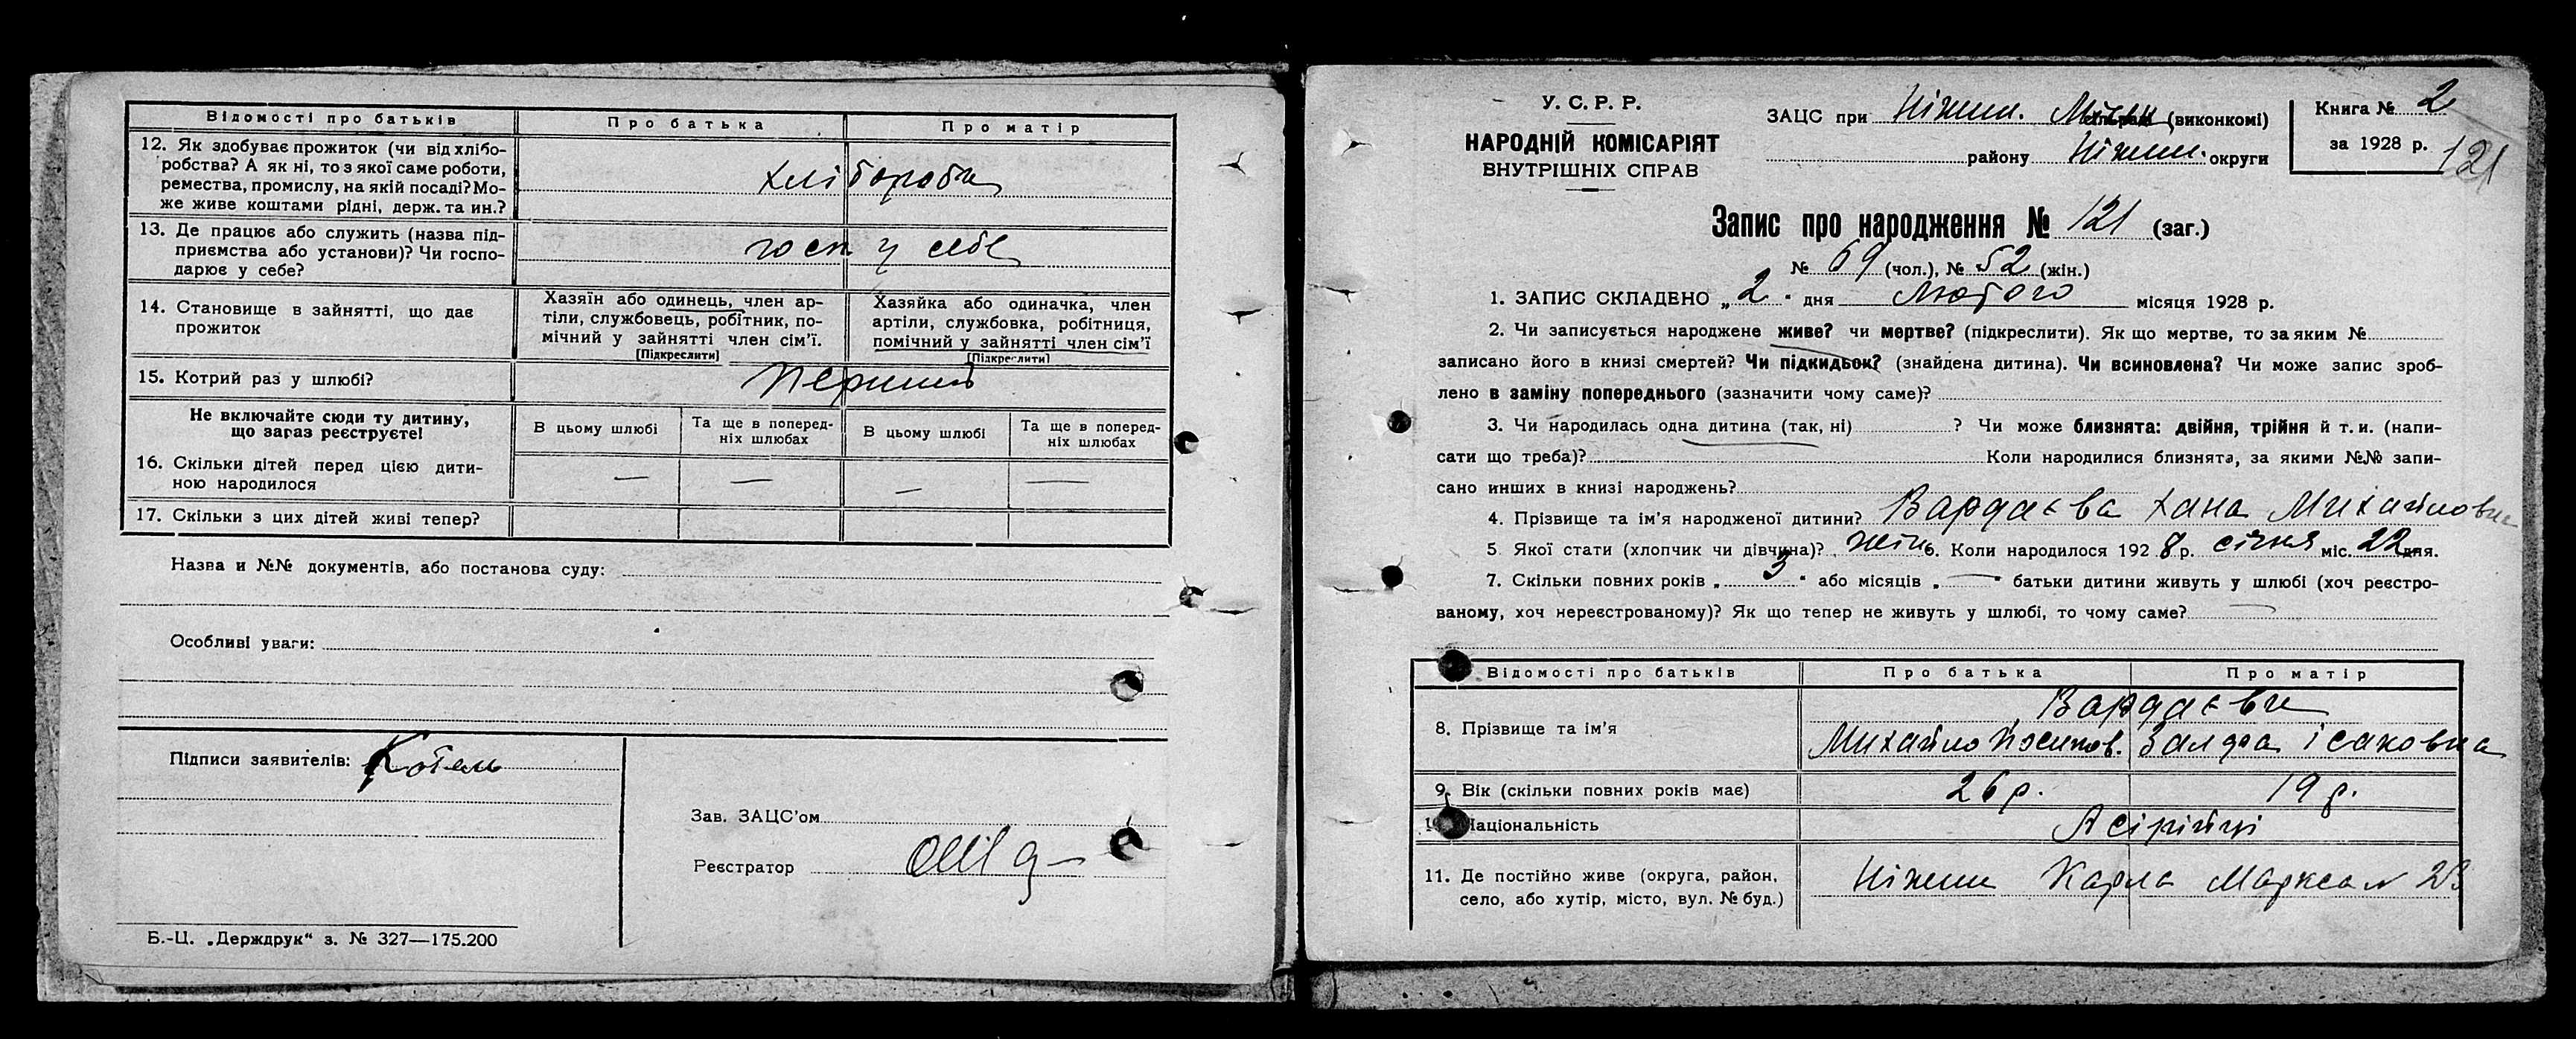 Відомості про батьків
Про батька
Про матір
12. Як здобуває прожиток (чи від хлібо-
робства? А як ні, то з якої саме роботи,
ремества, промислу, на якій посаді? Мо-
же живе коштами рідні, держ. та ин.?
хлібороби
13. Де працює або служить (назва під-
приємства або установи)? Чи госпо-
дарює у себе?
госп у себе
14. Становище в зайнятті, що дає
прожиток
Хазяїн або одинець, член ар-
тіли, службовець, робітник, по-
мічний у зайнятті член сім'ї.
(Підкреслити)
Хазяйка або одиначка, член
артіли, службовка, робітниця,
помічний у зайнятті член сім'ї
(Підкреслити)
15. Котрий раз у шлюбі?
перший
Не включайте сюди ту дитину,
що зараз реєструєте!
В цьому шлюбі
Та ще в поперед-
ніх шлюбах
В цьому шлюбі
Та ще в поперед-
ніх шлюбах
16. Скільки дітей перед цією дити-
ною народилося
— — — —
17. Скільки з цих дітей живі тепер?
Назва и №№ документів, або постанова суду:
Особливі уваги:
Підписи заявителів:
Зав. ЗАЦС'ом
Реєстратор
Б.-Ц. „Держдрук“ з. № 327—175.200
У. С. Р. Р.
НАРОДНІЙ КОМІСАРІЯТ
ВНУТРІШНІХ СПРАВ
ЗАЦС при Ніжин. Міськ (виконкомі)
району Ніжин. округи
Книга № 2
за 1928 р.
121
Запис про народження № 121 (заг.)
№ 69 (чол.), № 52 (жін.)
1. ЗАПИС СКЛАДЕНО „2“ дня Лютого місяця 1928 р.
2. Чи записується народжене живе? чи мертве? (підкреслити). Як що мертве, то за яким №
записано його в книзі смертей? Чи підкидьок? (знайдена дитина). Чи всиновлена? Чи може запис зроб-
лено в заміну попереднього (зазначити чому саме)?
3. Чи народилась одна дитина (так, ні) ? Чи може близнята: двійня, трійня й т. и. (напи-
сати що треба)? Коли народилися близнята, за якими №№ запи-
сано инших в книзі народжень?
4. Прізвище та ім'я народженої дитини? Вардаєва Хана Михайловна
5 Якої стати (хлопчик чи дівчина)? жін 6. Коли народилось 1928 р. січня міс. 22 дня.
7. Скільки повних років „3“ або місяців „—“ батьки дитини живуть у шлюбі (хоч реєстро-
ваному, хоч нереєстрованому)? Як що тепер не живуть у шлюбі, то чому саме? —
Відомості про батьків
Про батька
Про матір
8. Прізвище та ім'я
Вардаєви
Михайло Йосипов. Залфа Ісаковна
9. Вік (скільки повних років має)
26 р.
19 р.
10. Національність
Асірійці
11. Де постійно живе (округа, район,
село, або хутір, місто, вул. № буд.)
Ніжин Карла Маркса № 23